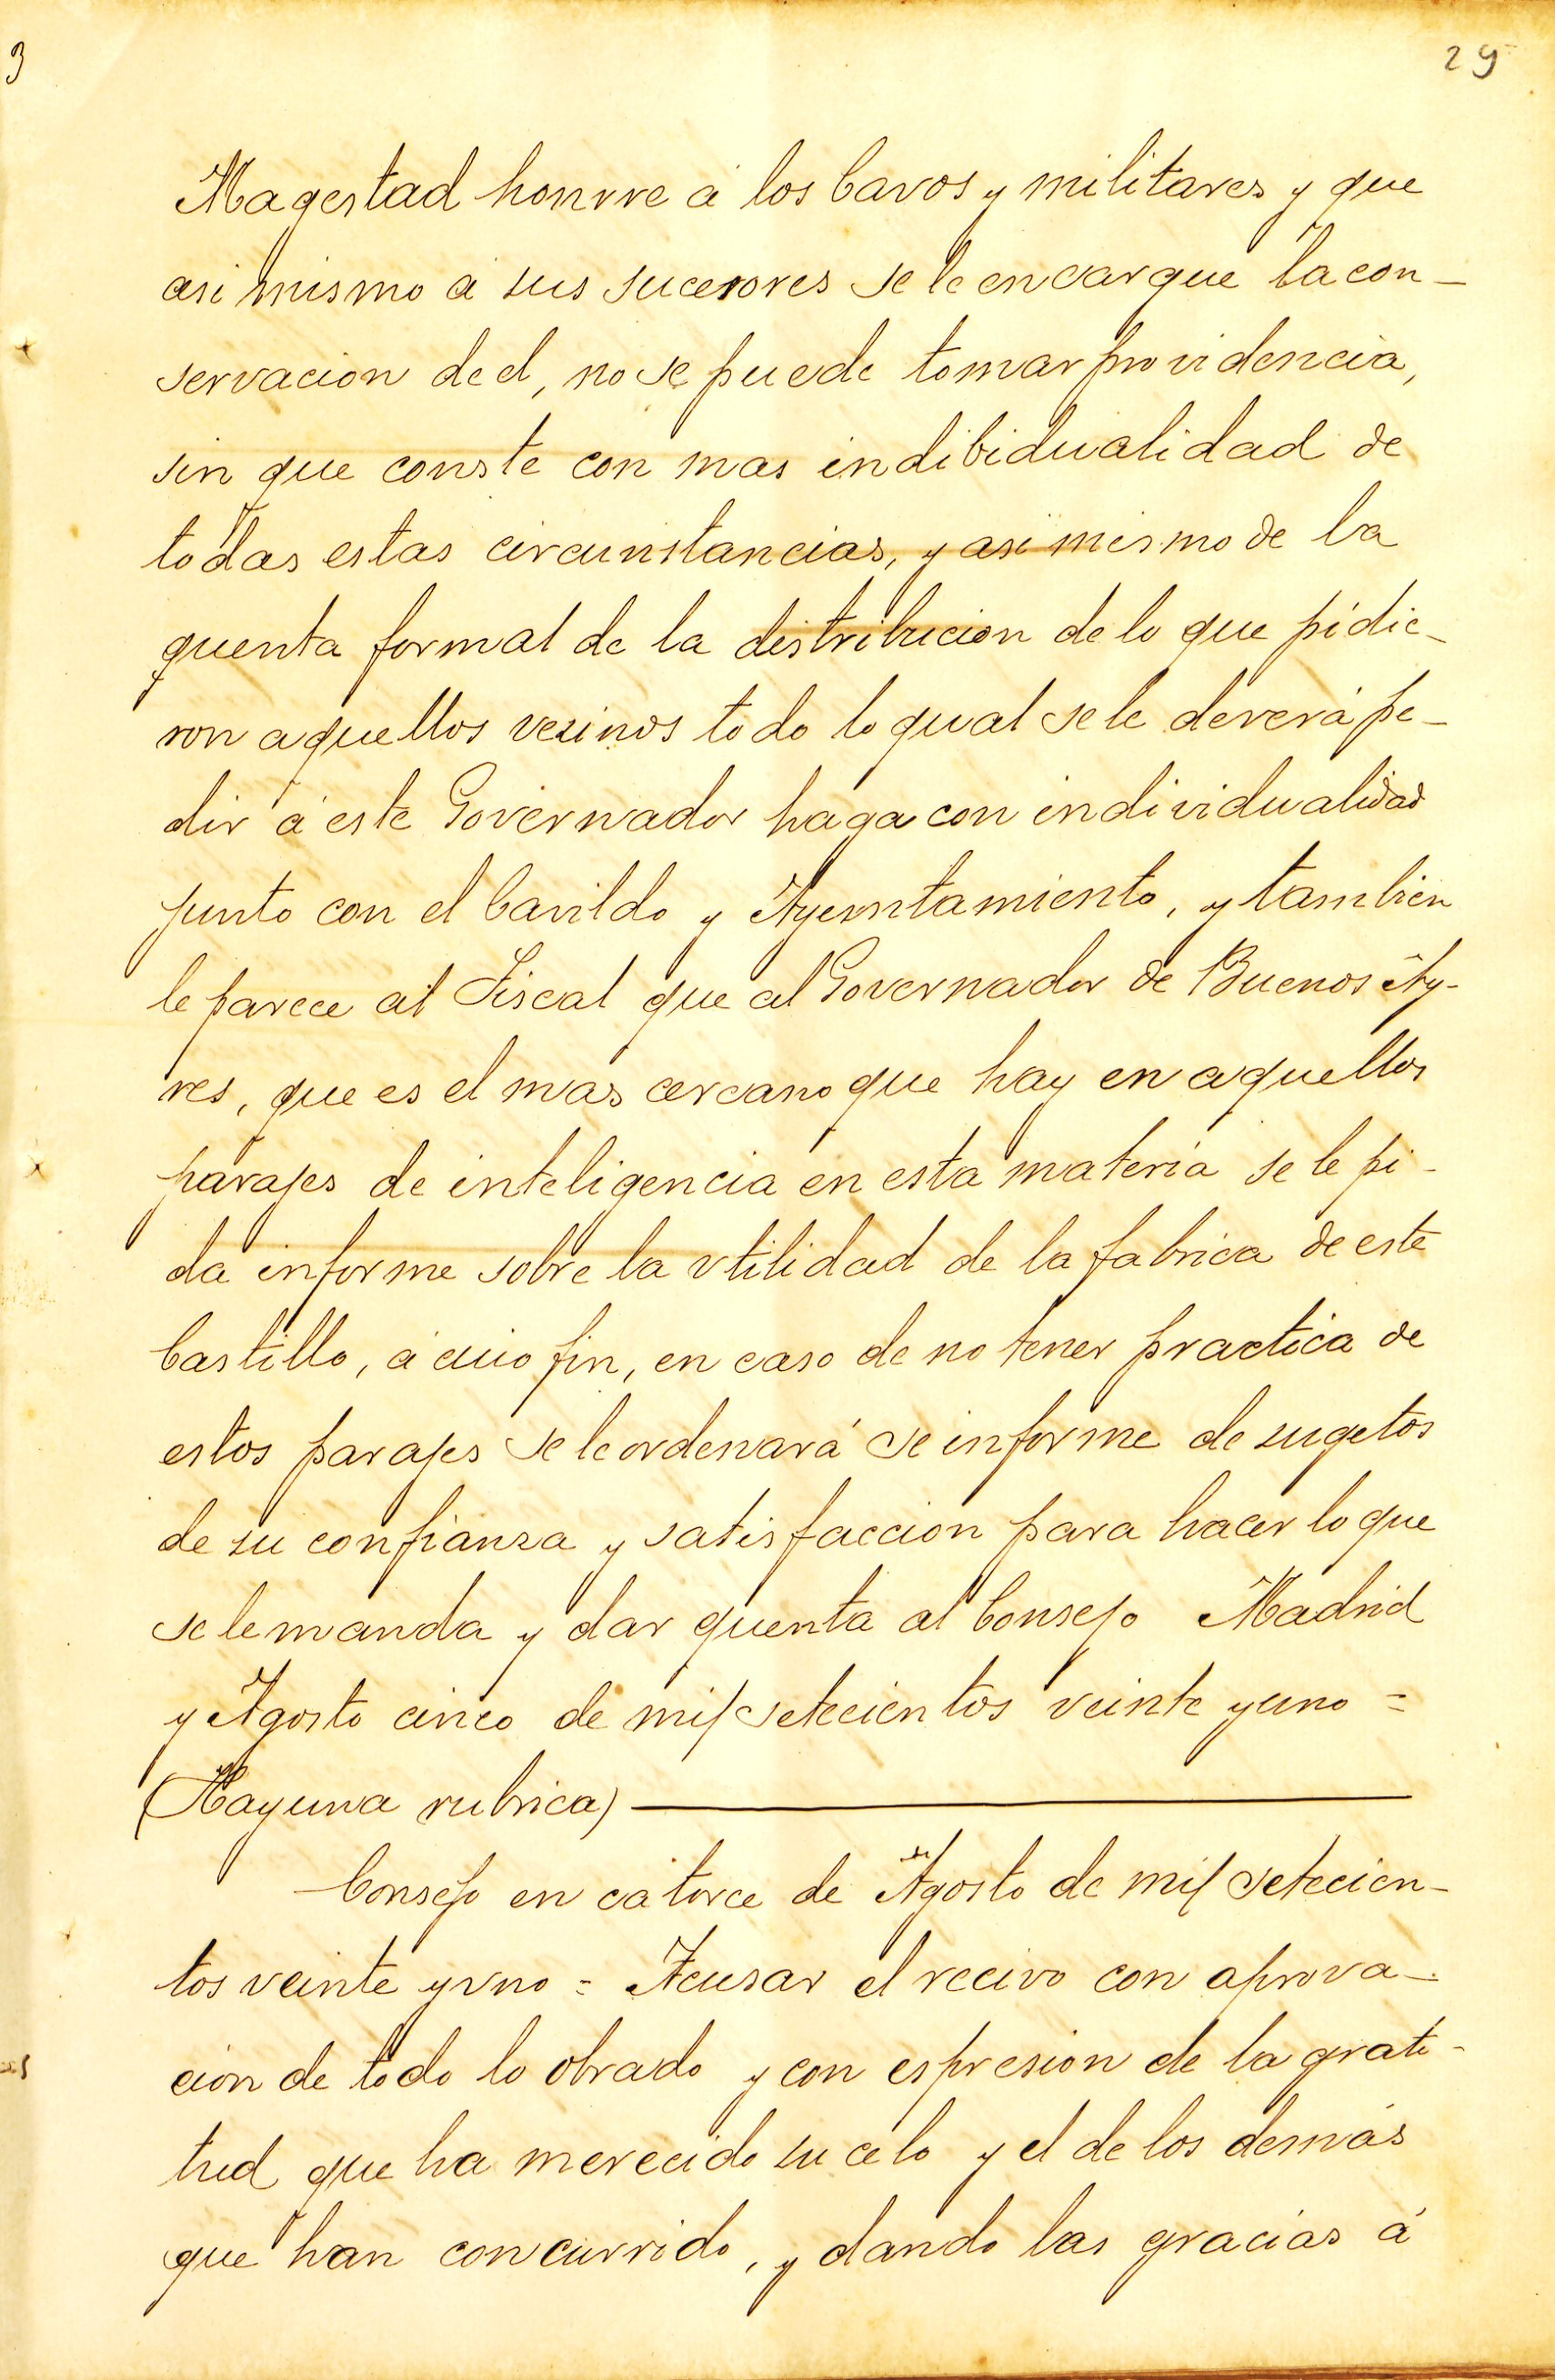 29
Magestad honrre á los Cavos y militares y que
asi mismo á sus sucesores se le encargue la con-
servacion de el, no se puede tomar providencia,
sin que conste con mas indibidualidad de
todas estas circunstancias, y asi mismo de la
quenta formal de la distribucion de lo que pidie-
ron aquellos vezinos todo lo qual se le deverá pe-
dir á este Governador haga con individualidad
junto con el Cavildo y Ayuntamiento, y tambien
le parece al Fiscal que al Governador de Buenos Ay-
res, que es el mas cercano que hay en aquellos
parajes de inteligencia en esta materia se le pi-
da informe sobre la vtilidad de la fabrica de este
Castillo, á cuio fin, en caso de no tener practica de
estos parajes se le ordenará se informe de sugetos
de su confianza y satisfaccion para hacer lo que
se le manda y dar quenta al Consejo Madrid
y Agosto cinco de mil setecientos veinte y uno =
(Hay una rubrica)
Consejo en catorce de Agosto de mil setecien-
tos veinte y vno = Acusar el recivo con aprova-
cion de todo lo obrado y con espresion de la grati-
tud que ha merecido su celo y el de los demás
que han concurrido, y dando las gracias á